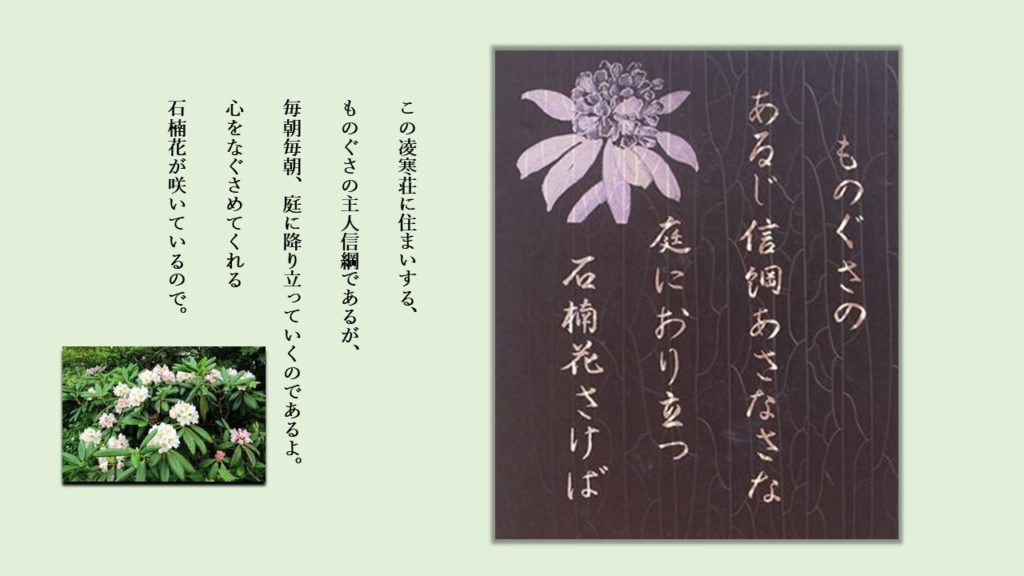 ものぐさの
あるじ信綱あさなさな
庭におり立つ
石楠花さけば
この凌寒荘に住まいする、
ものぐさの主人信綱であるが、
毎朝毎朝、庭に降り立っていくのであるよ。
心をなぐさめてくれる
石楠花が咲いているので。